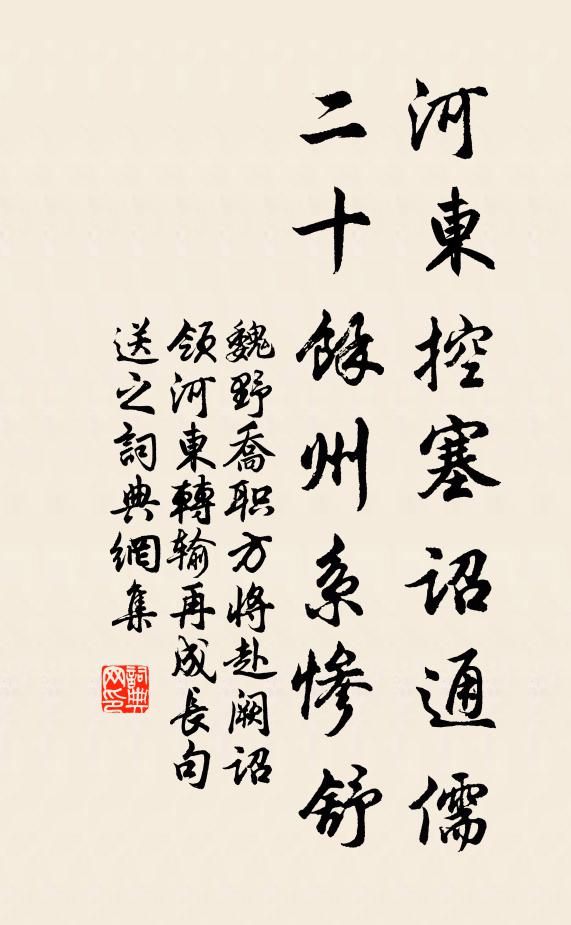 河東控塞詔通儒
二十餘州系慘舒
魏野喬职方將赴阙詔
領河東轉输再成長句
送之詞典網集
詞典网印